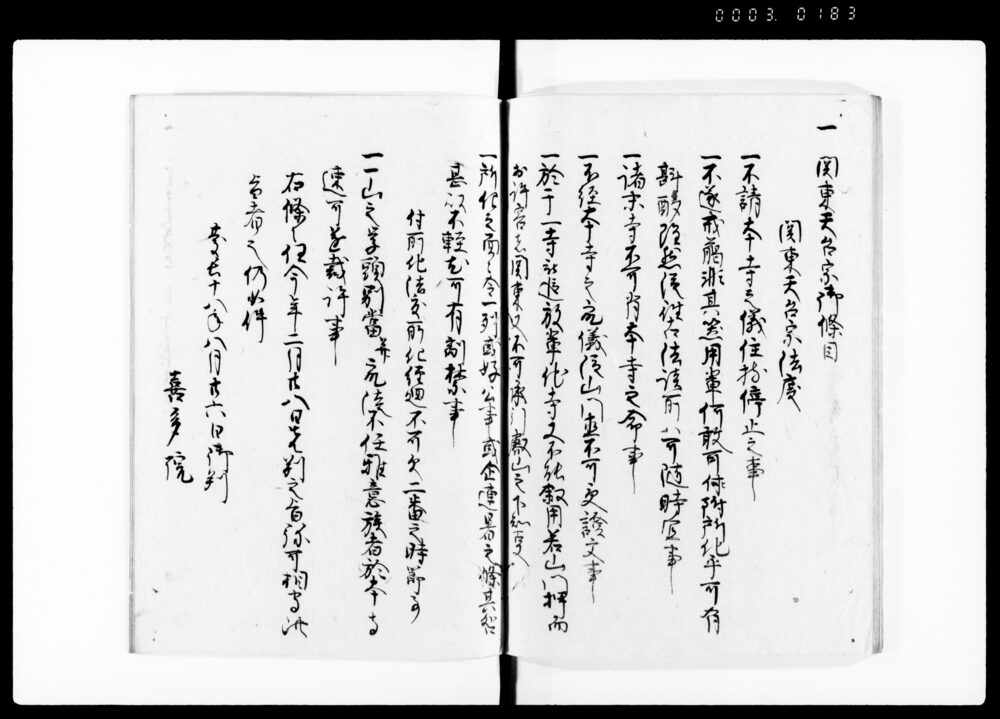 0003. 0183
一 関東天台宗御條目
関東天台宗法度
一不請本寺之儀住持停止之事
一不遂戒﨟非其器用輩何敢可俳附所化乎可有
斟酌雖然從雖為法談所ハ可随時宜事
一諸末寺不可背本寺之命事
一不經本寺之ニ儀從山門直不可受證文事
一於于一寺被追放輩他寺又不能叙用若山門押而
於許容者関東又不可承引叡山之下知事
一所化之面々令一列或好公事或企連署之條其咎
甚以不輕尤可有禁事
付所化法度所化經廻不可欠二番之時節事
一一山之学頭別當并衆徒不任雅意族者於本寺
速可遂裁許事
右條々任今年二月廿八日先判之旨弥可相守此
旨者也仍如件
慶長十八年八月廿六日御判
喜多院